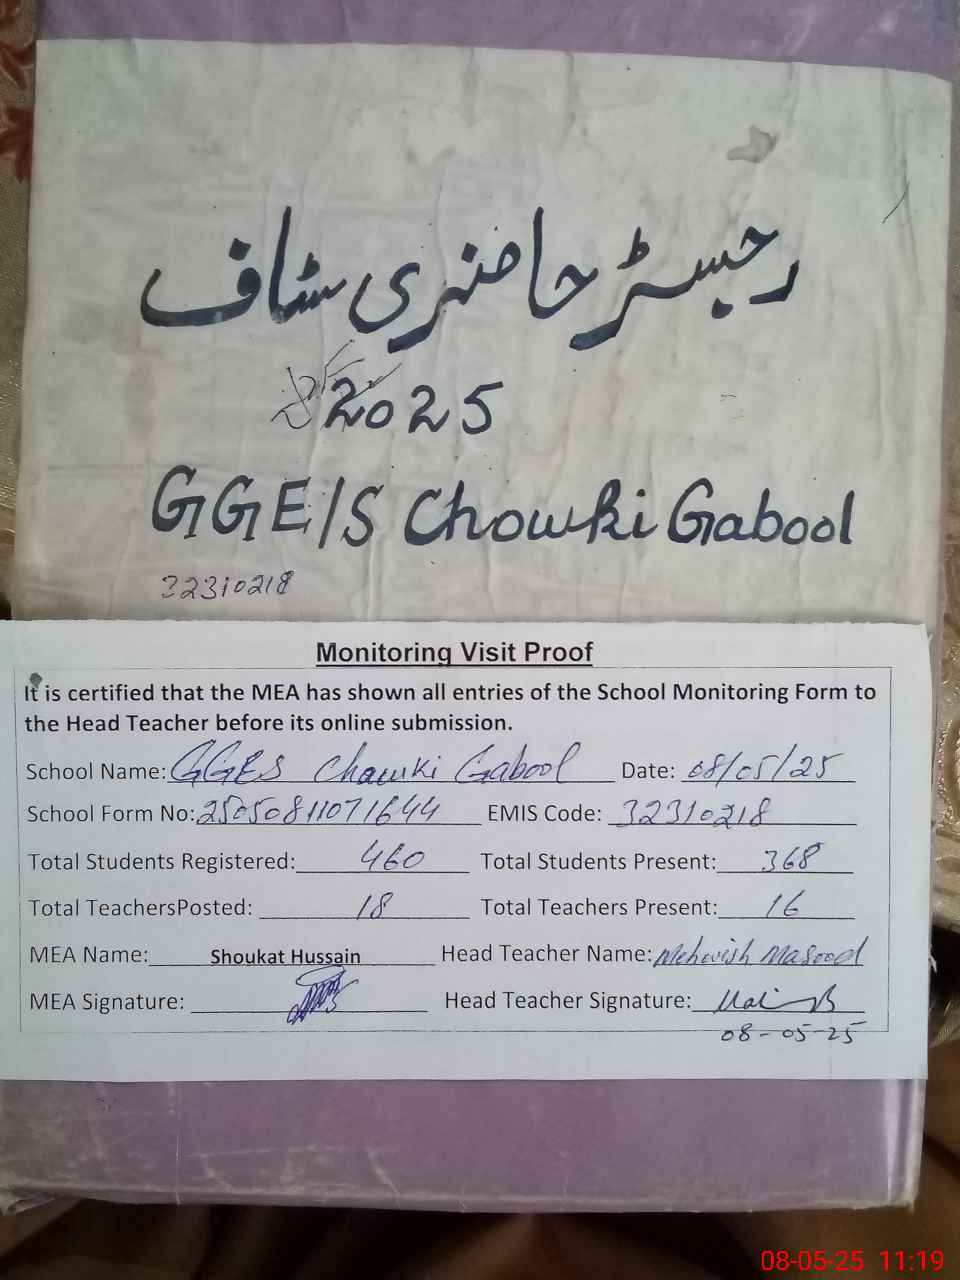 رجسٹر حاضری سٹاف
2025
GGE/S Chowki Gabool
32310218
Monitoring Visit Proof
It is certified that the MEA has shown all entries of the School Monitoring Form to
the Head Teacher before its online submission.
School Name: GGES Chowki Gabool Date: 08/05/25
School Form No: 25050811071644 EMIS Code: 32310218
Total Students Registered: 460 Total Students Present: 368
Total TeachersPosted: 18 Total Teachers Present: 16
MEA Name: Shoukat Hussain Head Teacher Name: Mehwish Masood
MEA Signature: Head Teacher Signature:
08-05-25
08-05-25 11:19